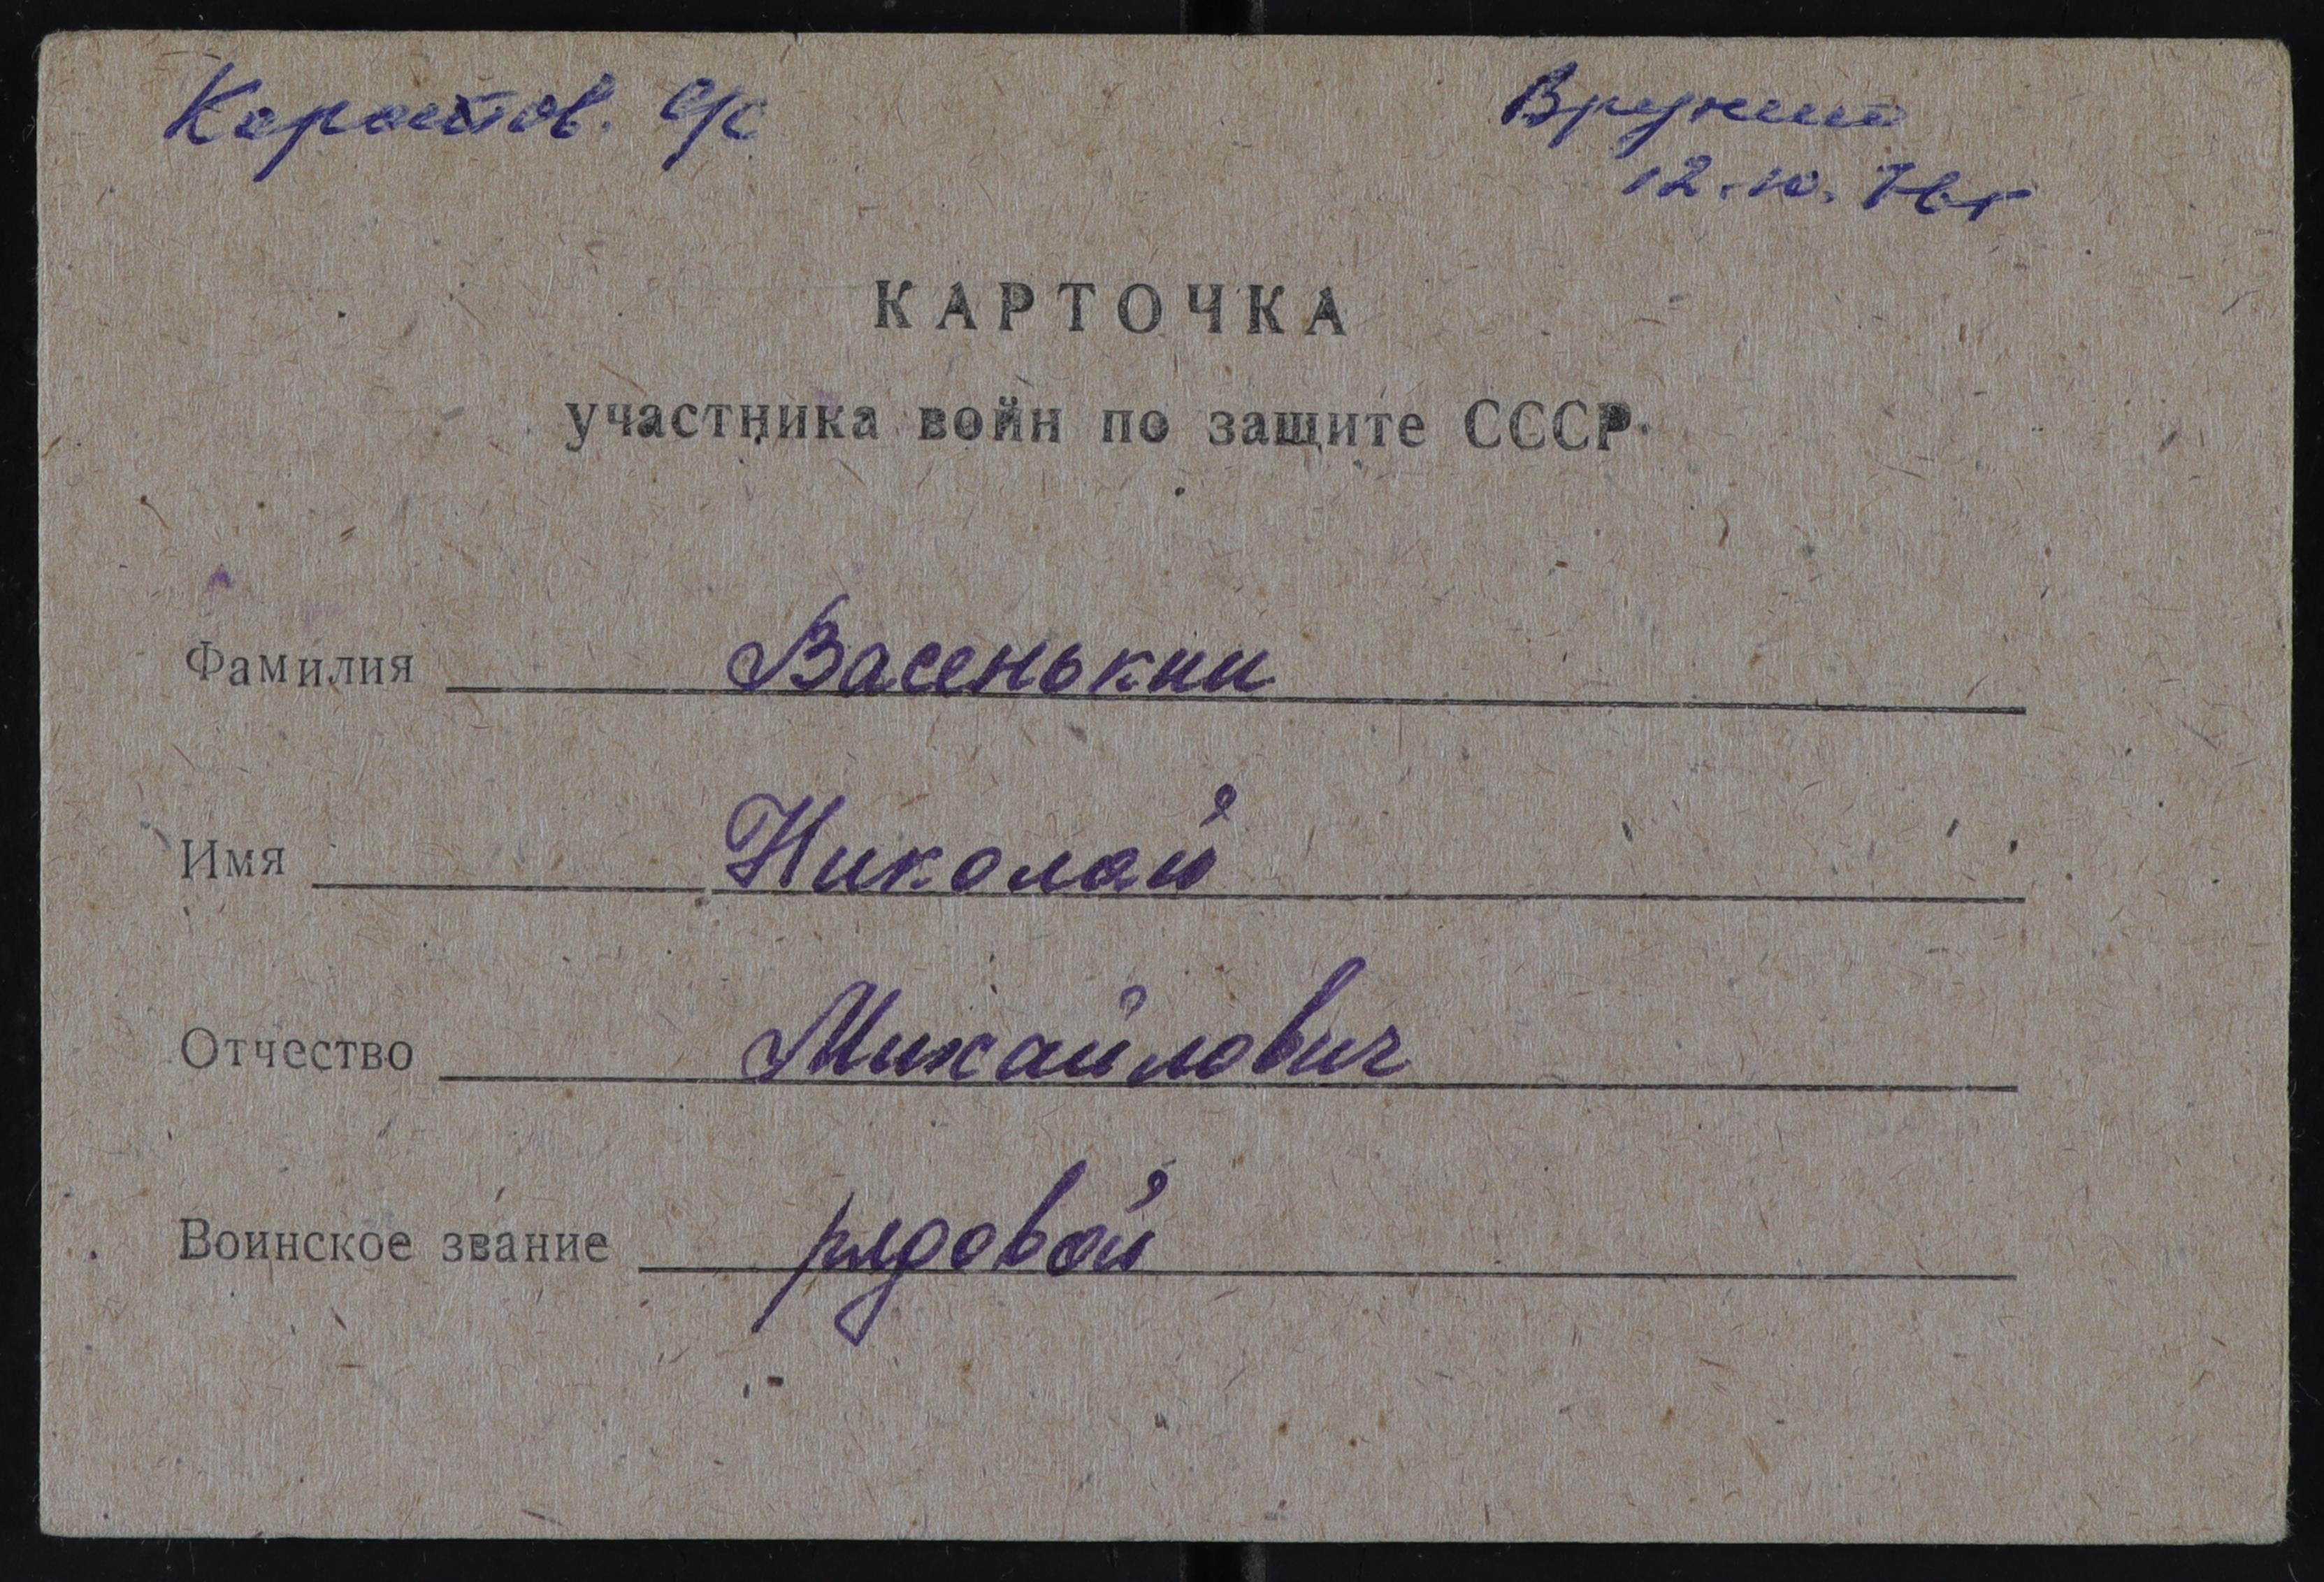 Коростов. с/с
Вручено
12.10.76г
КАРТОЧКА
участника войн по защите СССР
Фамилия Васенькин
Имя Николай
Отчество Михайлович
Воинское звание рядовой